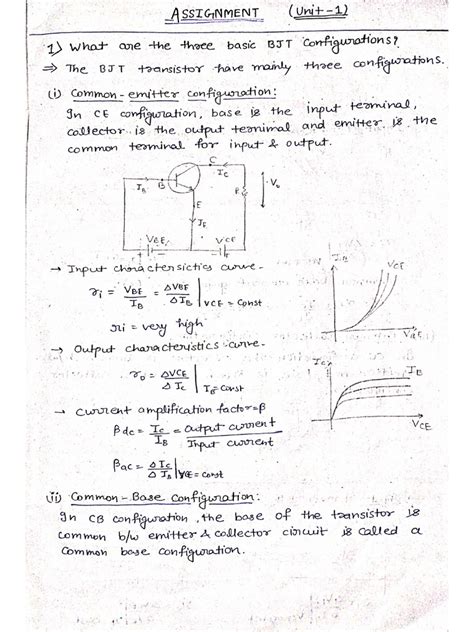 ASSIGNMENT (Unit-1)
1) What are the three basic BJT Configurations?
⇒ The BJT transistor have mainly three configurations.
(i) Common-emitter configuration:
In CE configuration, base is the input terminal,
collector is the output terminal and emitter is the
common terminal for input & output.
C
IC
IB
B
E
IE
R
V₀
VBE
VCE
→ Input characteristics curve-
ri = VBE / IB = ΔVBE / ΔIB | VCE = Const
ri = very high
IB
VCE
VBE
→ Output characteristics curve-
r₀ = ΔVCE / ΔIC | IB = Const
IC
IB
VCE
→ current amplification factor=β
βdc = IC / IB = Output current / Input current
βac = ΔIC / ΔIB | VCE = const
(ii) Common-Base Configuration:
In CB configuration, the base of the transistor is
common b/w emitter & collector circuit is called a
Common base configuration.